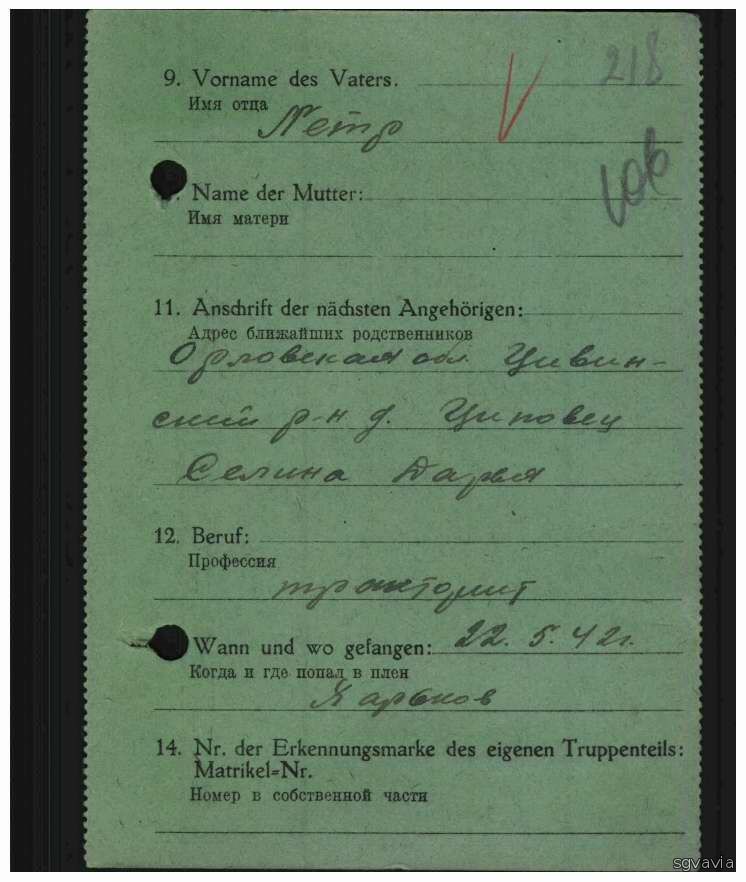 218
9. Vorname des Vaters.
Имя отца
Петр
юв
Name der Mutter:
Имя матери
11. Anschrift der nächsten Angehörigen:
Адрес ближайших родственников
Орловская обл. Цивин-
ский р-н д. Циповец
Селина Дарья
12. Beruf:
Профессия
тракторист
Wann und wo gefangen: 22. 5. 42г.
Когда и где попал в плен
Харьков
14. Nr. der Erkennungsmarke des eigenen Truppenteils:
Matrikel=Nr.
Номер в собственной части
sgvavia